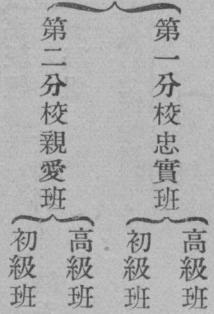 第一分校忠實班
高級班
初級班
第二分校親愛班
高級班
初級班